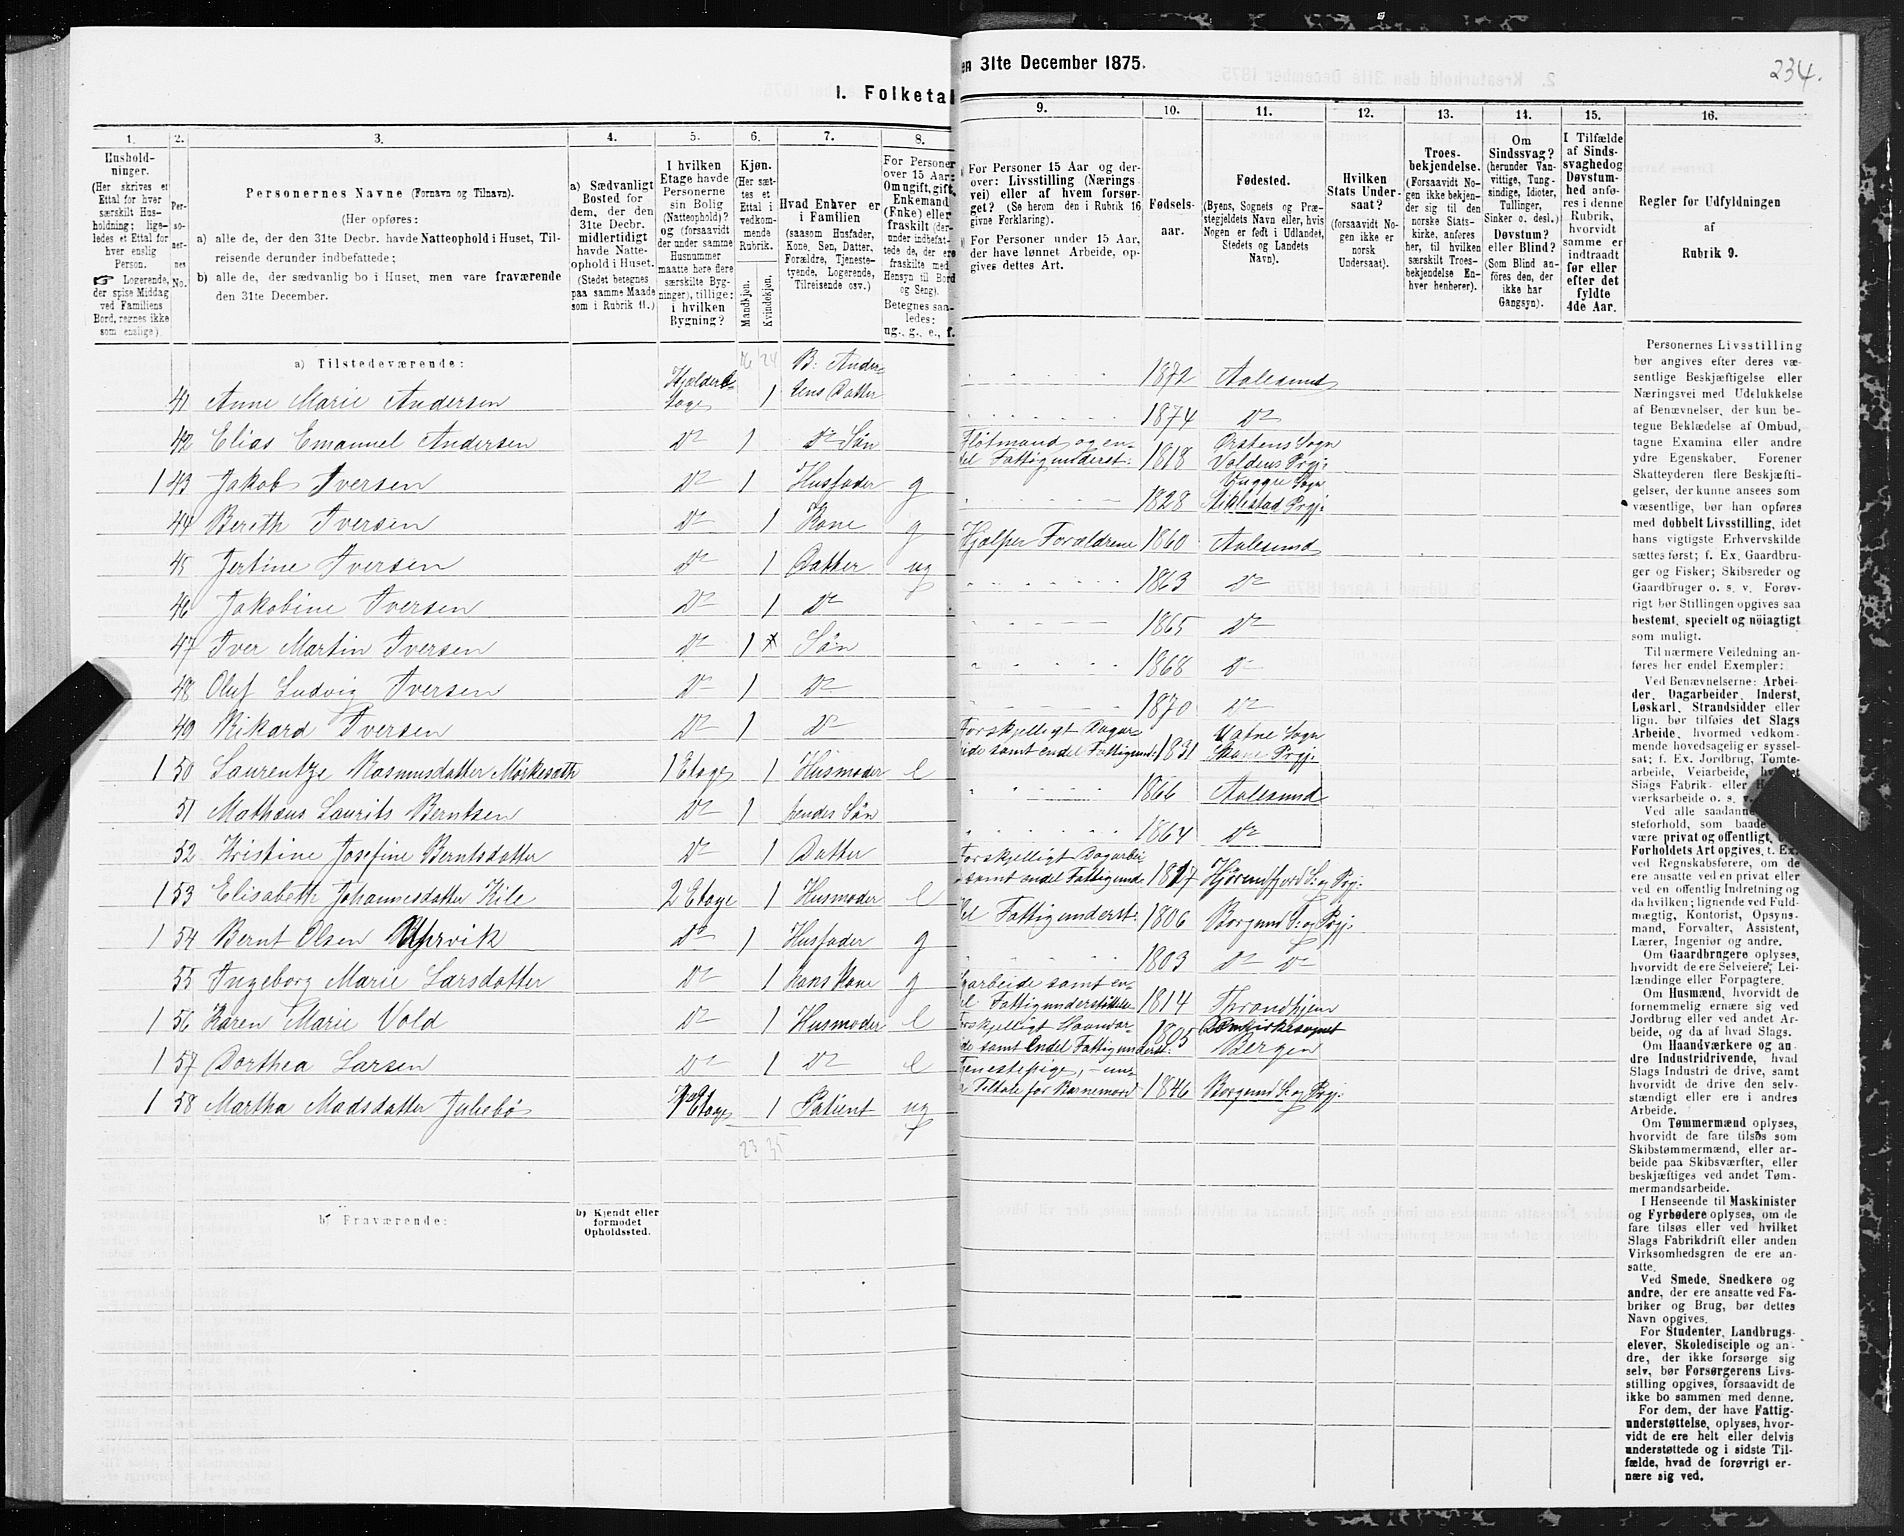 en 31te December 1875.
234.
I. Folketal
1.
2.
3.
4.
5.
6.
7.
8.
9.
10.
11.
12.
13.
14.
15.
16.
Hushold-
ninger.
(Her skrives et
Ettal for hver
særskilt Hus-
holdning; lige-
ledes et Ettal for
hver enslig
Person.
☞ Logerende,
der spise Middag
ved Familiens
Bord, regnes ikke
som enslige).
Per-
soner-
nes
No.
Personernes Navne (Fornavn og Tilnavn).
(Her opføres:
a) alle de, der den 31te Decbr. havde Natteophold i Huset, Til-
reisende derunder indbefattede;
b) alle de, der sædvanlig bo i Huset, men vare fraværende
den 31te December.
a) Sædvanligt
Bosted for
dem, der den
31te Decbr.
midlertidigt
havde Natte-
ophold i Huset.
(Stedet betegnes
paa samme Maade
som i Rubrik 11.)
I hvilken
Etage havde
Personerne
sin Bolig
(Natteophold)?
og (forsaavidt
der under samme
Husnummer
maatte høre flere
særskilte Byg-
ninger), tillige:
i hvilken
Bygning?
Kjøn.
(Her sæt-
tes et
Ettal i
vedkom-
mende
Rubrik.
Mandkjøn.
Kvindekjøn.
Hvad Enhver er
i Familien
(saasom Husfader,
Kone, Søn, Datter,
Forældre, Tjeneste-
tyende, Logerende,
Tilreisende osv.)
For Personer
over 15 Aar:
Om ugift, gift,
Enkemand
(Enke) eller
fraskilt (der-
under indbefat-
tede de, der ere
fraskilte med
Hensyn til Bord
og Seng).
Betegnes saa-
ledes:
ug., g., e., f.
For Personer 15 Aar og der-
over: Livsstilling (Nærings
vei) eller af hvem forsør-
get? (Se herom den i Rubrik 16
givne Forklaring).
For Personer under 15 Aar,
der have lønnet Arbeide, op-
gives dettes Art.
Fødsels-
aar.
Fødested.
(Byens, Sognets og Præ-
stegjeldets Navn eller, hvis
Nogen er født i Udlandet,
Stedets og Landets
Navn).
Hvilken
Stats Under-
saat?
(forsaavidt No-
gen ikke er
norsk
Undersaat).
Troes-
bekjendelse.
(Forsaavidt No-
gen ikke bekjen-
der sig til den
norske Stats-
kirke, anføres
her, til hvilken
særskilt Troes-
bekjendelse En-
hver henhører).
Om
Sindssvag?
(herunder Van-
vittige, Tung-
sindige, Idioter,
Tullinger,
Sinker o. desl.)
Døvstum?
eller Blind?
(Som Blind an-
føres den, der
ikke har
Gangsyn).
I Tilfælde
af Sinds-
svaghed og
Døvstum-
hed anfø-
res i denne
Rubrik,
hvorvidt
samme er
indtraadt
før eller
efter det
fyldte
4de Aar.
Regler for Udfyldningen
af
Rubrik 9.
a) Tilstedeværende:
16 24
41 Anne Marie Andersen Kjelderetage 1 B. Andersens Datter 1872 Aalesund
42 Elias Emanuel Andersen Do 1 Do Søn 1874 Do
1 43 Jakob Iversen Do 1 Husfader g Fløtmand og endel Fattigunderst: 1818 Ørstens Sogn Voldens Prgj:
44 Berith Iversen Do 1 Kone g 1828 Vugge Sogn Stiklestad Prgj:
45 Jertine Iversen Do 1 Datter ug Hjælper Forældrene 1860 Aalesund
46 Jakobine Iversen Do 1 Do 1863 Do
47 Iver Martin Iversen Do 1 Søn 1865 Do
48 Oluf Ludvig Iversen Do 1 Do 1868 Do
49 Rikard Iversen Do 1 Do 1870 Do
1 50 Laurentze Rasmusdatter Mørkesæth 1 Etage 1 Husmoder e Forskjelligt Dagarbeide samt endel Fattigund: 1831 Vatne Sogn Prgj:
51 Mathæus Laurits Berntsen Do 1 hendes Søn 1866 Aalesund
52 Kristine Josefine Berntsdatter Do 1 Datter 1864 Do
1 53 Elisabeth Johannesdatter Kile 2 Etage 1 Husmoder e Forskjelligt Dagarbei samt endel Fattigund 1817 Hjørendfjord S: og Prgj:
1 54 Bernt Olsen Uhrvik Do 1 Husfader g del Fattigunderst: 1806 Borgund S: og Prgj:
55 Ingeborg Marie Larsdatter Do 1 hans Kone g 1803 Do Do
1 56 Karen Marie Vold Do 1 Husmoder e garbeide samt endel Fattigunderstøttelse 1814 Throndhjem Domkirkesognet
1 57 Dorthea Larsen Do 1 Do e Forskjelligt Haandarbeide samt Endel Fattigunderst: 1805 Bergen
1 58 Martha Madsdatter Julebø Etage 1 Patient ug Tjenestepige, under Tiltale for Barnemord 1846 Borgund S: og Prgj:
23 35
b) Fraværende:
b) Kjendt eller
formodet
Opholdssted.
Personernes Livsstilling
bør angives efter deres væ-
sentlige Beskjæftigelse eller
Næringsvei med Udelukkelse
af Benævnelser, der kun be-
tegne Beklædelse af Ombud,
tagne Examina eller andre
ydre Egenskaber. Forener
Skatteyderen flere Beskjæfti-
gelser, der kunne ansees som
væsentlige, bør han opføres
med dobbelt Livsstilling, idet
hans vigtigste Erhvervskilde
sættes først; f. Ex. Gaardbru-
ger og Fisker; Skibsreder og
Gaardbruger o. s. v. Forøv-
rigt bør Stillingen opgives saa
bestemt, specielt og nöiagtigt
som muligt.
Til nærmere Veiledning an-
føres her endel Exempler:
Ved Benævnelserne: Arbei-
der, Dagarbeider, Inderst,
Løskarl, Strandsidder eller
lign. bør tilføies det Slags
Arbeide, hvormed vedkom-
mende hovedsagelig er syssel-
sat; f. Ex. Jordbrug, Tomte-
arbeide, Veiarbeide,
Slags Fabrik- eller
værksarbeide o. s.
Ved alle saadanne
steforhold, som baade
være privat og offentligt,
Forholdets Art opgives, t. Ex.
ved Regnskabsførere, om de
ere ansatte ved en privat eller
ved en offentlig Indretning og
da hvilken; lignende ved Fuld-
mægtig, Kontorist, Opsyns-
mand, Forvalter, Assistent,
Lærer, Ingeniør og andre.
Om Gaardbrugere oplyses,
hvorvidt de ere Selveiere, Lei-
lændinge eller Forpagtere.
Om Husmænd, hvorvidt de
fornemmelig ernære sig ved
Jordbrug eller ved andet Ar-
beide, og da af hvad Slags.
Om Haandværkere og an-
dre Industridrivende, hvad
Slags Industri de drive, samt
hvorvidt de drive den selv-
stændigt eller ere i andres
Arbeide.
Om Tømmermænd oplyses,
hvorvidt de fare tilsøs som
Skibstømmermænd, eller ar-
beide paa Skibsværfter, eller
beskjæftiges ved andet Tøm-
mermandsarbeide.
I Henseende til Maskinister
og Fyrbødere oplyses, om de
fare tilsøs eller ved hvilket
Slags Fabrikdrift eller anden
Virksomhedsgren de ere an-
satte.
Ved Smede, Snedkere og
andre, der ere ansatte ved Fa-
briker og Brug, bør dettes
Navn opgives.
For Studenter, Landbrugs-
elever, Skoledisciple og an-
dre, der ikke forsørge sig
selv, bør Forsørgerens Livs-
stilling opgives, forsaavidt de
ikke bo sammen med denne.
For dem, der have Fattig-
understøttelse, oplyses, hvor-
vidt de ere helt eller delvis
understøttede og i sidste Til-
fælde, hvad de forøvrigt er-
nære sig ved.